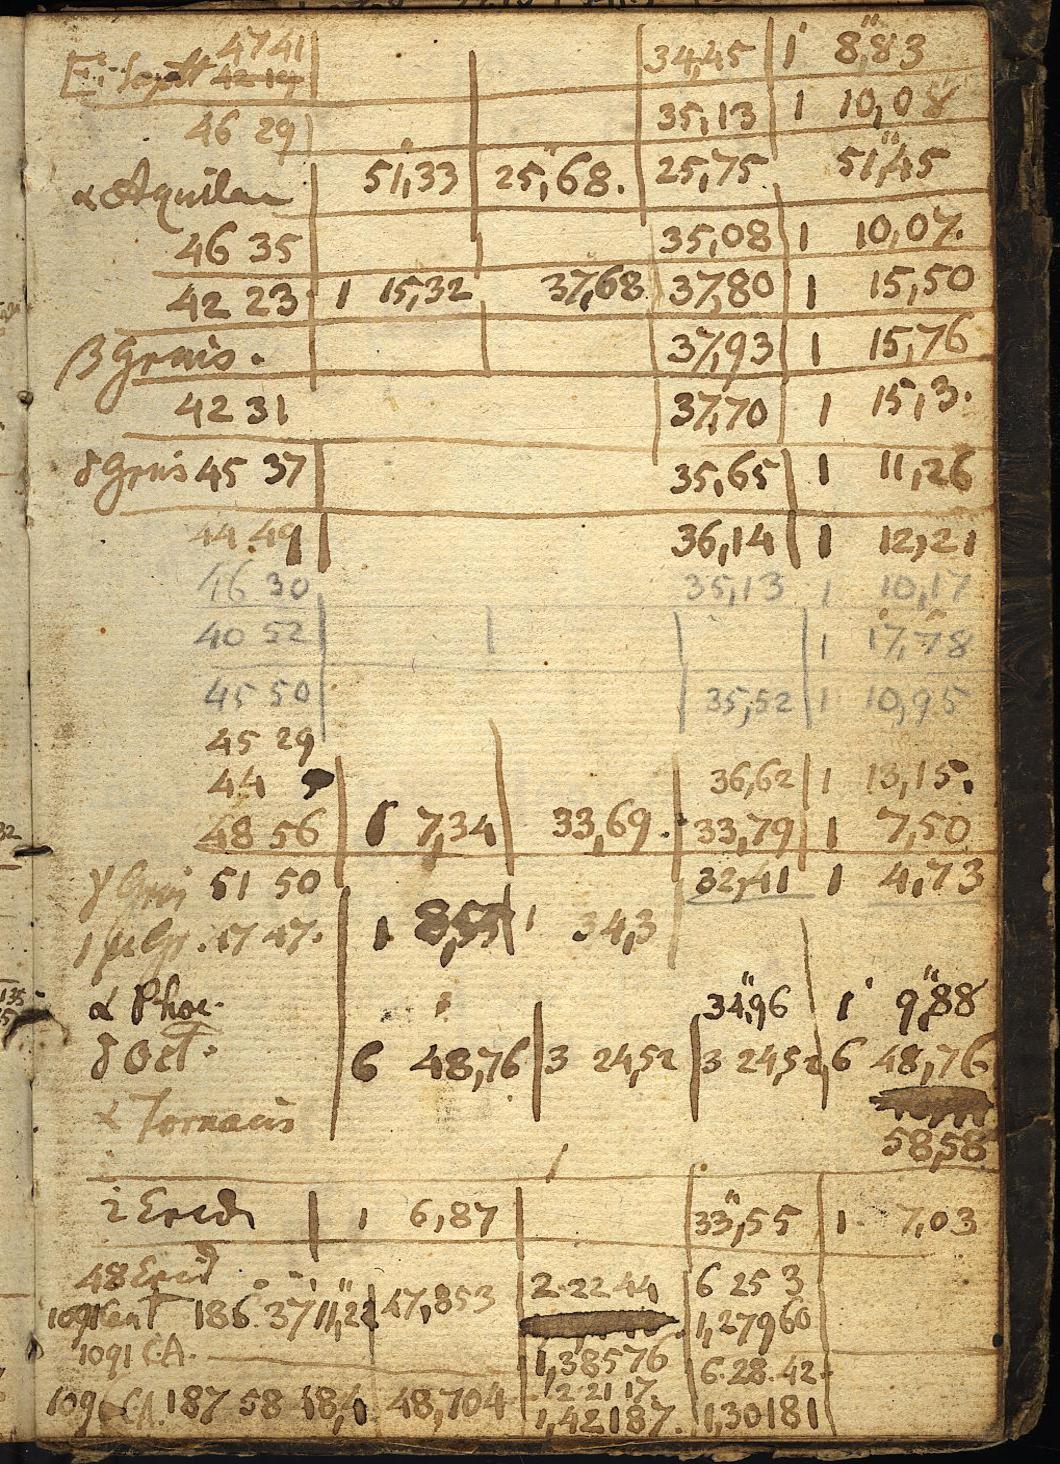 47 41 34,45 1' 8",83
42 19
46 29 35,13 1 10,08
α Aquilae 51,33 25,68. 25,75 51",45
46 35 35,08 1 10,07.
42 23 1 15,32 37,68 37,80 1 15,50
β Gruis. 37,93 1 15,76
42 31 37,70 1 15,3.
δ Gruis 45 37 35,65 1 11,26
44 49 36,14 1 12,21
46 30 35,13 1 10,17
40 52 1 17,78
45 50 35,52 1 10,95
45 29
44 36,62 1 13,15.
48 56 1 7,34 33,69. 33,79 1 7,50
γ Gruis 51 50 32,41 1 4,73
1 μ Gr. 47 47. 1 8,55 34,3
α Phoe. 34",96 1' 9",88
δ Oct. 6 48,76 3 24,52 3 24,52 6 48,76
α Fornacis
58,58
i Erid 1 6,87 33",55 1. 7,03
48 Erid 2.22 44 6 25 3
109 186. 37 11,22 47,853 1,27960
1091 CA. 1,38576 6.28.42.
109 CA. 187 58 18,4 48,704 12 21 17. 1,42187. 1,30181